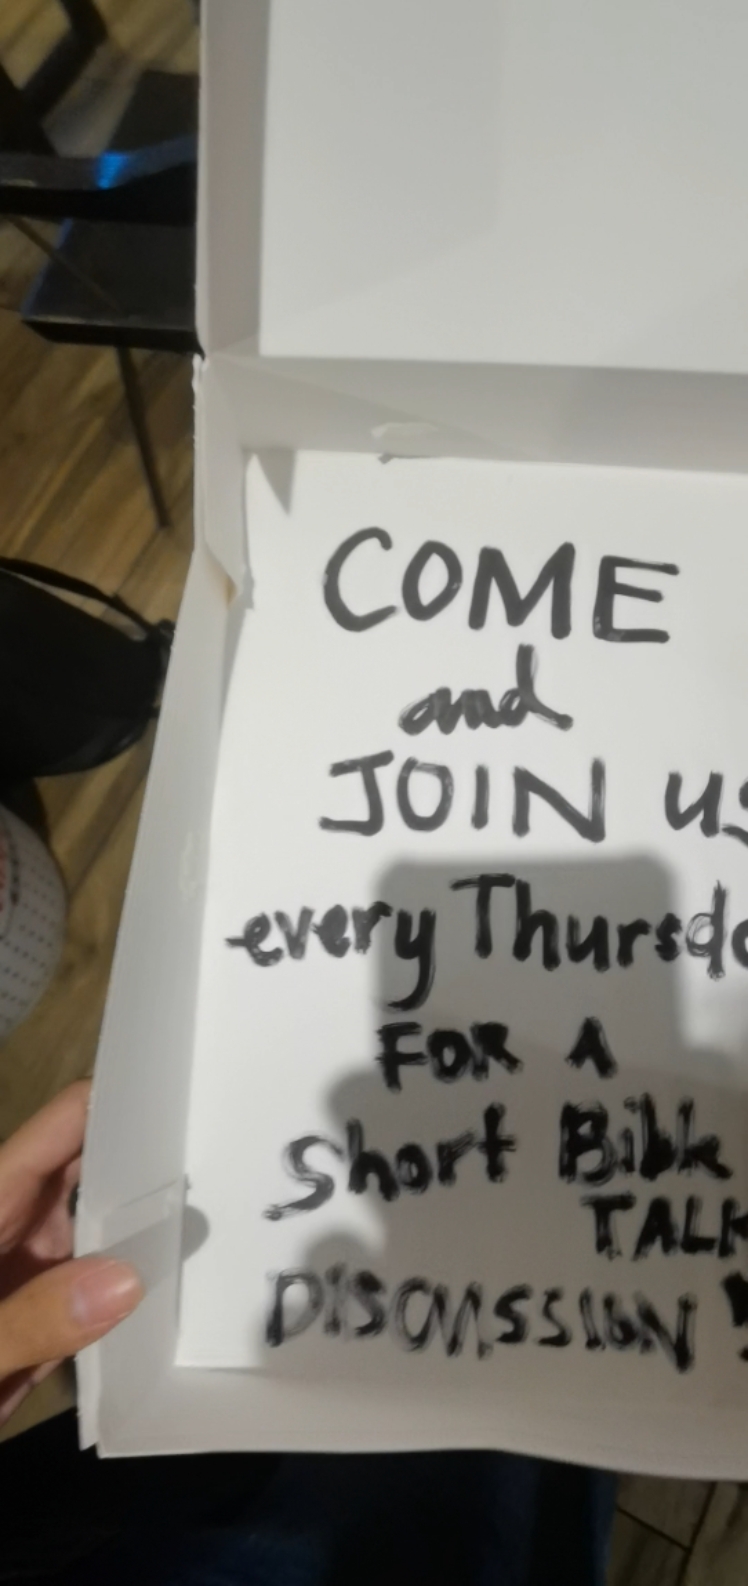 COME
and
JOIN us
every Thursda
FOR A
Short Bible
TALK
DISCUSSION